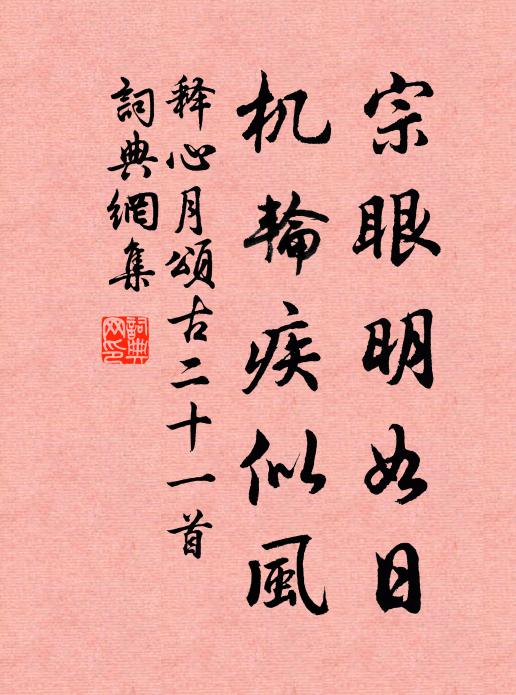 宗眼明如日
机輪疾似風
释心月頌古二十一首
詞典網集
詞典網印